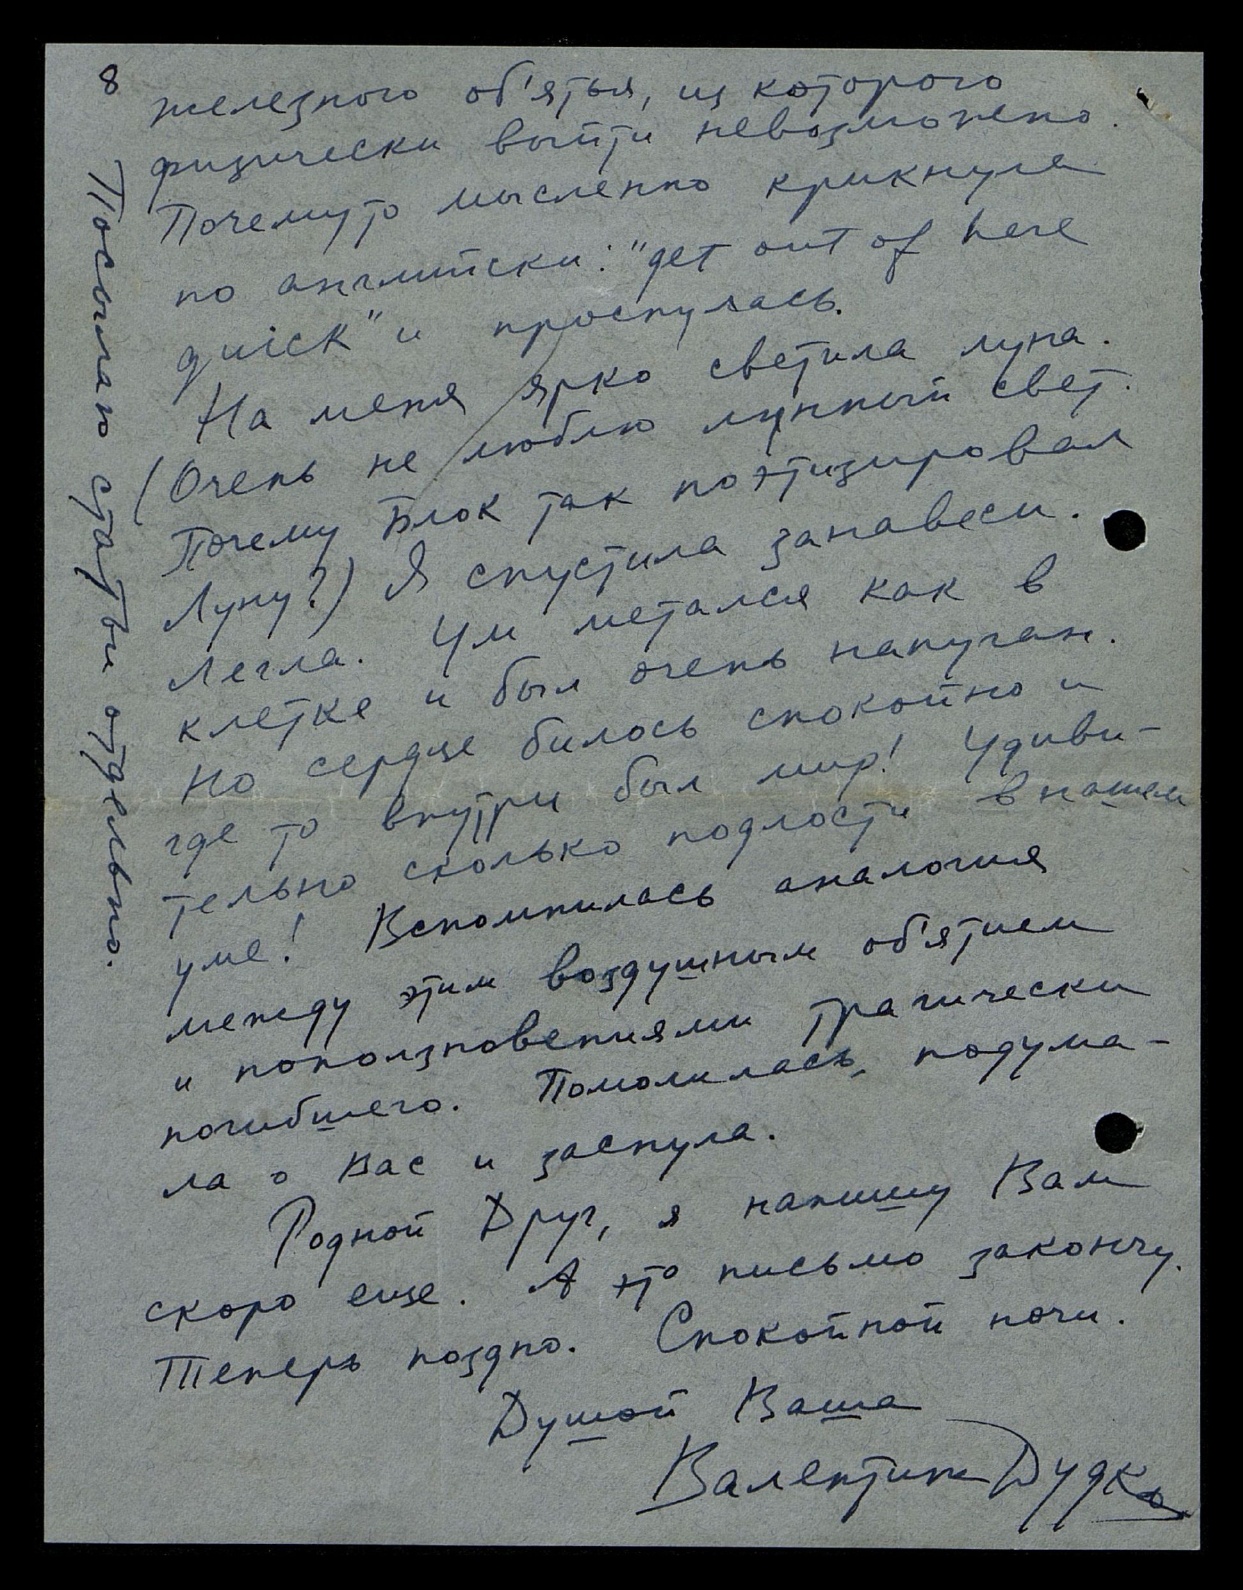 8
железного об'ятья, из которого
физически выйти невозможно.
Почему то мысленно крикнула
по английски: "get out of here
quick" и проснулась.
На меня ярко светила луна.
(Очень не люблю лунный свет.
Почему Блок так поэтизировал
Луну?) Я спустила занавеси.
Легла. Ум метался как в
клетке и был очень напуган.
Но сердце билось спокойно и
где то внутри был мир! Удиви-
тельно сколько подлости в нашем
уме! Вспомнилась аналогия
между этим воздушным об'ятием
и поползновениями трагически
погибшего. Помолилась, подума-
ла о Вас и заснула.
Родной Друг, я напишу Вам
скоро еще. А это письмо закончу.
Теперь поздно. Спокойной ночи.
Душой Ваша
Валентина Дудко
Посылаю статьи отдельно.